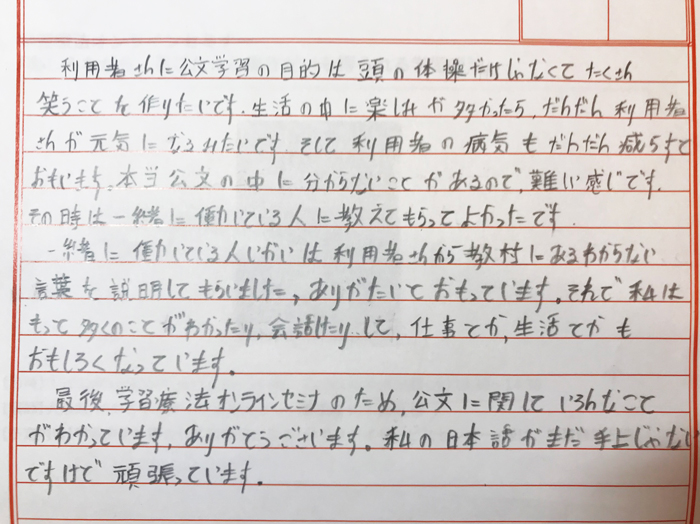 利用者さんに公文学習の目的は頭の体操だけじゃなくてたくさん
笑うことを作りたいです。生活の中に楽しみが多かったら、だんだん利用者
さんが元気になるみたいです。そして利用者の病気もだんだん減らすて
おもいます。本当公文の中に分からないことがあるので、難しい感じです。
その時は一緒に働いている人に教えてもらってよかったです。
一緒に働いている人いがいは利用者さんから教材にあるわからない
言葉を説明してもらいました。ありがたいとおもっています。それで私は
もって多くのことがわかったり、会話したりして、仕事でか、生活でかも
おもしろくなっています。
最後、学習療法オンラインセミナのため、公文に関していろんなこと
がわかっています。ありがとうございます。私の日本語がまだ手上じゃない
ですけで頑張っています。